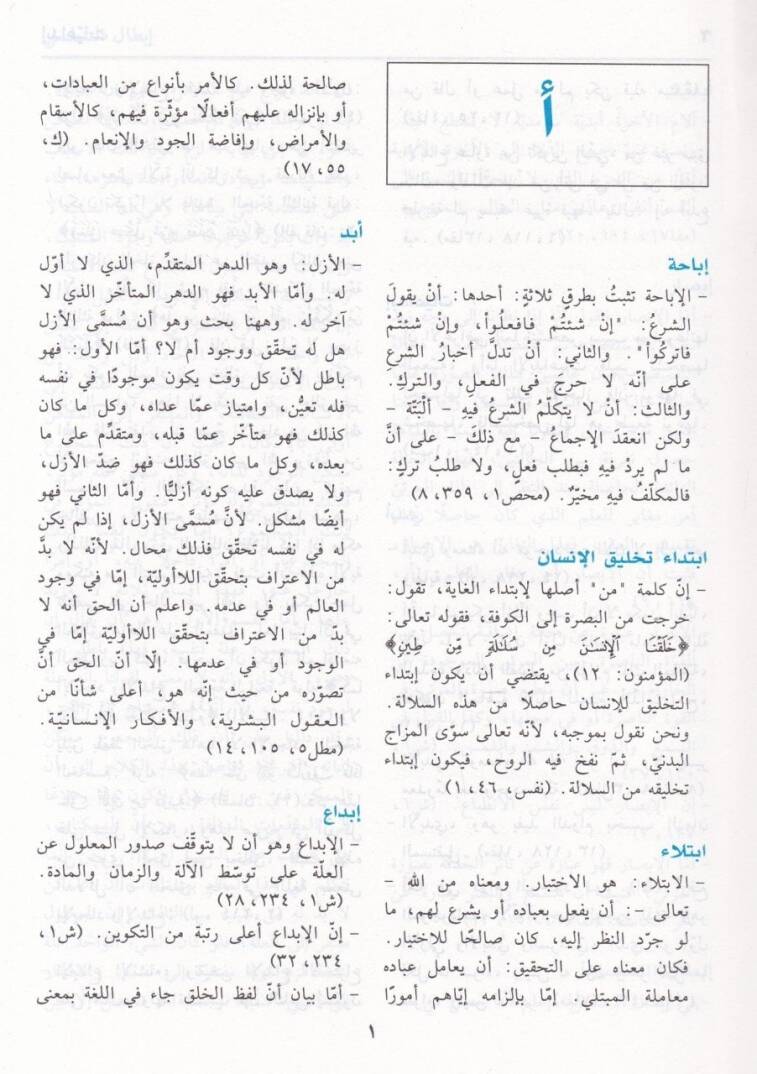 أ
إباحة
- الإباحة تثبتُ بطرقٍ ثلاثةٍ: أحدها: أنْ يقولَ
الشرعُ: "إنْ شئتُم فافعلُواْ، وإنْ شئتُم
فاتركُوا". والثاني: أنْ تدلَّ أخبارُ الشرعِ
على أنّه لا حرجَ في الفعلِ، والتركِ.
والثالث: أنْ لا يتكلَّمُ الشرع فيهِ – ألبتَّة –
ولكن انعقدَ الإجماع – مع ذلكَ – على أنَّ
ما لم يردْ فيهِ فيطلب فعلٍ، ولا طلبُ تركٍ:
فالمكلَّفُ فيهِ مخيّرٌ. (محص١، ٣٥٩، ٨)
ابتداء تخليق الإنسان
- إنّ كلمة "من" أصلها لابتداء الغاية، تقول:
خرجت من البصرة إلى الكوفة، فقوله تعالى:
﴿خَلَقْنَا ٱلْإِنسَٰنَ مِن سُلَٰلَةٍ مِّن طِينٍ﴾
(المؤمنون: ١٢)، يقتضي أن يكون إبتداء
التخليق للإنسان حاصلًا من هذه السلالة.
ونحن نقول بموجبه، لأنّه تعالى سوّى المزاج
البدنيّ، ثمّ نفخ فيه الروح، فيكون إبتداء
تخليقه من السلالة. (نفس، ٤٦، ١)
ابتلاء
- الابتلاء: هو الاختبار. ومعناه من الله –
تعالى –: أن يفعل بعباده أو يشرع لهم؛ ما
لو جرّد النظر إليه، كان صالحًا للاختبار.
فكان معناه على التحقيق: أن يعامل عباده
معاملة المبتلي، إمّا بإلزامه إيّاهم أمورًا
صالحة لذلك. كالأمر بأنواع من العبادات،
أو بإنزاله عليهم أفعالًا مؤثّرة فيهم، كالأسقام
والأمراض، وإفاضة الجود والإنعام. (ك،
٥٥، ١٧)
أبد
- الأزل: وهو الدهر المتقدِّم، الذي لا أوّل
له. وأمّا الأبد فهو الدهر المتأخّر الذي لا
آخر له. وههنا بحث وهو أن مُسمَّى الأزل
هل له تحقّق ووجود أم لا؟ أمّا الأول: فهو
باطل لأنّ كل وقت يكون موجودًا في نفسه
فله تعيُّن، وامتياز عمّا عداه، وكل ما كان
كذلك فهو متأخّر عمّا قبله، ومتقدّم على ما
بعده، وكل ما كان كذلك فهو ضدّ الأزل،
ولا يصدق عليه كونه أزليًّا. وأمّا الثاني فهو
أيضًا مشكل. لأنّ مُسمَّى الأزل، إذا لم يكن
له في نفسه تحقّق فذلك محال. لأنّه لا بدّ
من الاعتراف بتحقق اللاأوليّة، إمّا في وجود
العالم أو في عدمه. واعلم أن الحق أنه لا
بدّ من الاعتراف بتحقّق اللاأوليّة إمّا في
الوجود أو في عدمها. إلّا أنّ الحق أنَّ
تصوّره من حيث إنّه هو، أعلى شأنًا من
العقول البشريّة، والأفكار الإنسانيّة.
(مطل٥، ١٠٥، ١٤)
إبداع
- الإبداع وهو أن لا يتوقّف صدور المعلول عن
العلّة على توسّط الآلة والزمان والمادة.
(ش١، ٢٣٤، ٢٨)
- إنّ الإبداع أعلى رتبة من التكوين. (ش١،
٢٣٤، ٣٢)
- أمّا بيان أنّ لفظ الخلق جاء في اللغة بمعنى
١